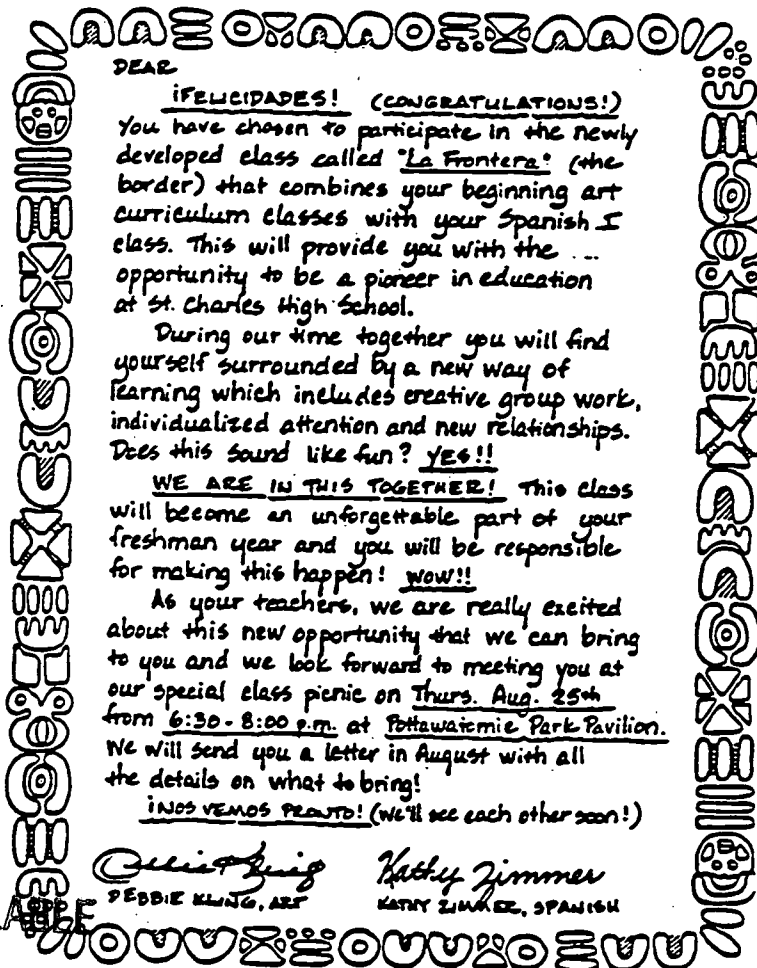 DEAR
¡FELICIDADES! (CONGRATULATIONS!)
You have chosen to participate in the newly
developed class called "La Frontera" (the
border) that combines your beginning art
curriculum classes with your Spanish I
class. This will provide you with the ...
opportunity to be a pioneer in education
at St. Charles High School.
During our time together you will find
yourself surrounded by a new way of
learning which includes creative group work,
individualized attention and new relationships.
Does this sound like fun? YES!!
WE ARE IN THIS TOGETHER! This class
will become an unforgettable part of your
freshman year and you will be responsible
for making this happen! WOW!!
As your teachers, we are really excited
about this new opportunity that we can bring
to you and we look forward to meeting you at
our special class picnic on Thurs. Aug. 25th
from 6:30 - 8:00 p.m. at Pottawatomie Park Pavilion.
We will send you a letter in August with all
the details on what to bring!
¡NOS VEMOS PRONTO! (we'll see each other soon!)
Debbie Kling Kathy Zimmer
DEBBIE KLING, ART KATHY ZIMMER, SPANISH